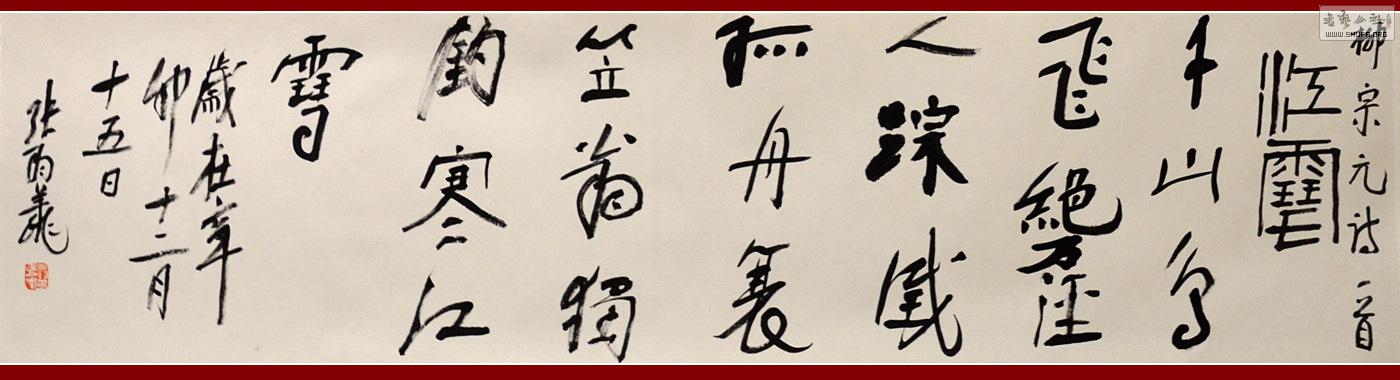 書藝公社
WWW.SHUFA.ORG
柳宗元诗一首
江雪
千山鸟
飛絶万径
人踪滅
孤舟蓑
笠翁獨
釣寒江
雪
歲在辛
卯十二月
十五日
张雨